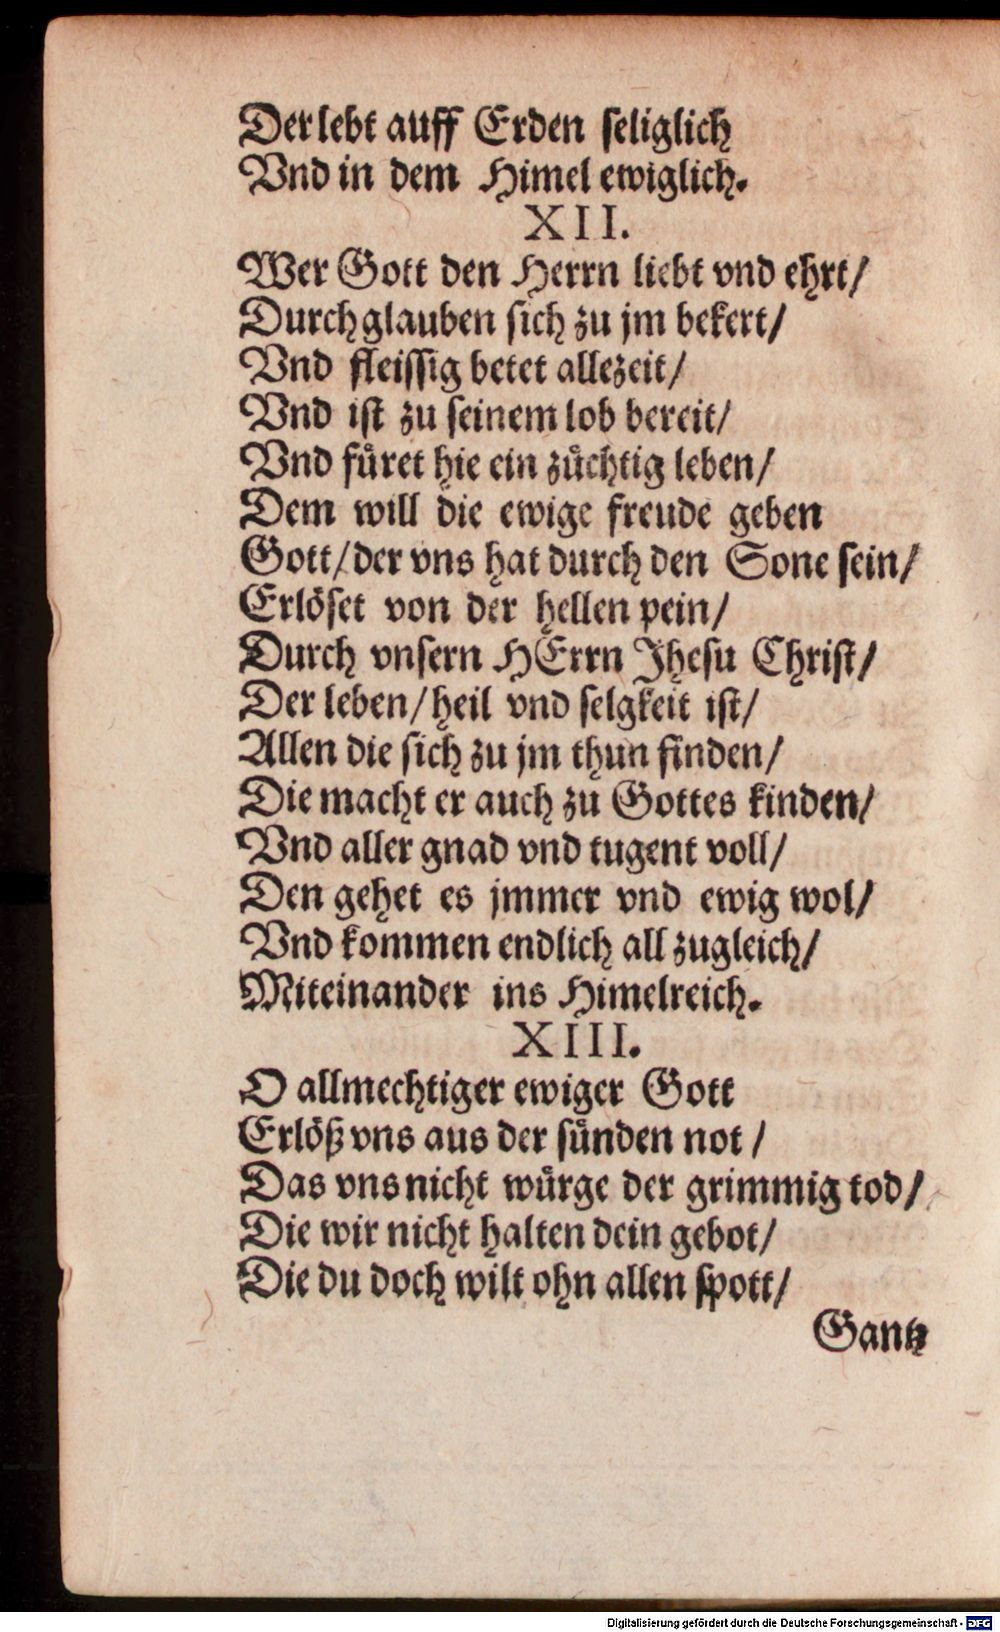 Der lebt auff Erden seliglich
Vnd in dem Himel ewiglich.
XII.
Wer Gott den Herrn liebt vnd ehrt/
Durch glauben sich zu jm bekert/
Vnd fleissig betet allezeit/
Vnd ist zu seinem lob bereit/
Vnd fuͤret hie ein zuͤchtig leben/
Dem will die ewige freude geben
Gott/ der vns hat durch den Sone sein/
Erlöset von der hellen pein/
Durch vnsern HErrn Jhesu Christ/
Der leben/ heil vnd selgkeit ist/
Allen die sich zu jm thun finden/
Die macht er auch zu Gottes kinden/
Vnd aller gnad vnd tugent voll/
Den gehet es jmmer vnd ewig wol/
Vnd kommen endlich all zugleich/
Miteinander ins Himelreich.
XIII.
O allmechtiger ewiger Gott
Erlöß vns aus der suͤnden not /
Das vns nicht wuͤrge der grimmig tod/
Die wir nicht halten dein gebot/
Die du doch wilt ohn allen spott/
Gantz
Digitalisierung gefördert durch die Deutsche Forschungsgemeinschaft - DFG